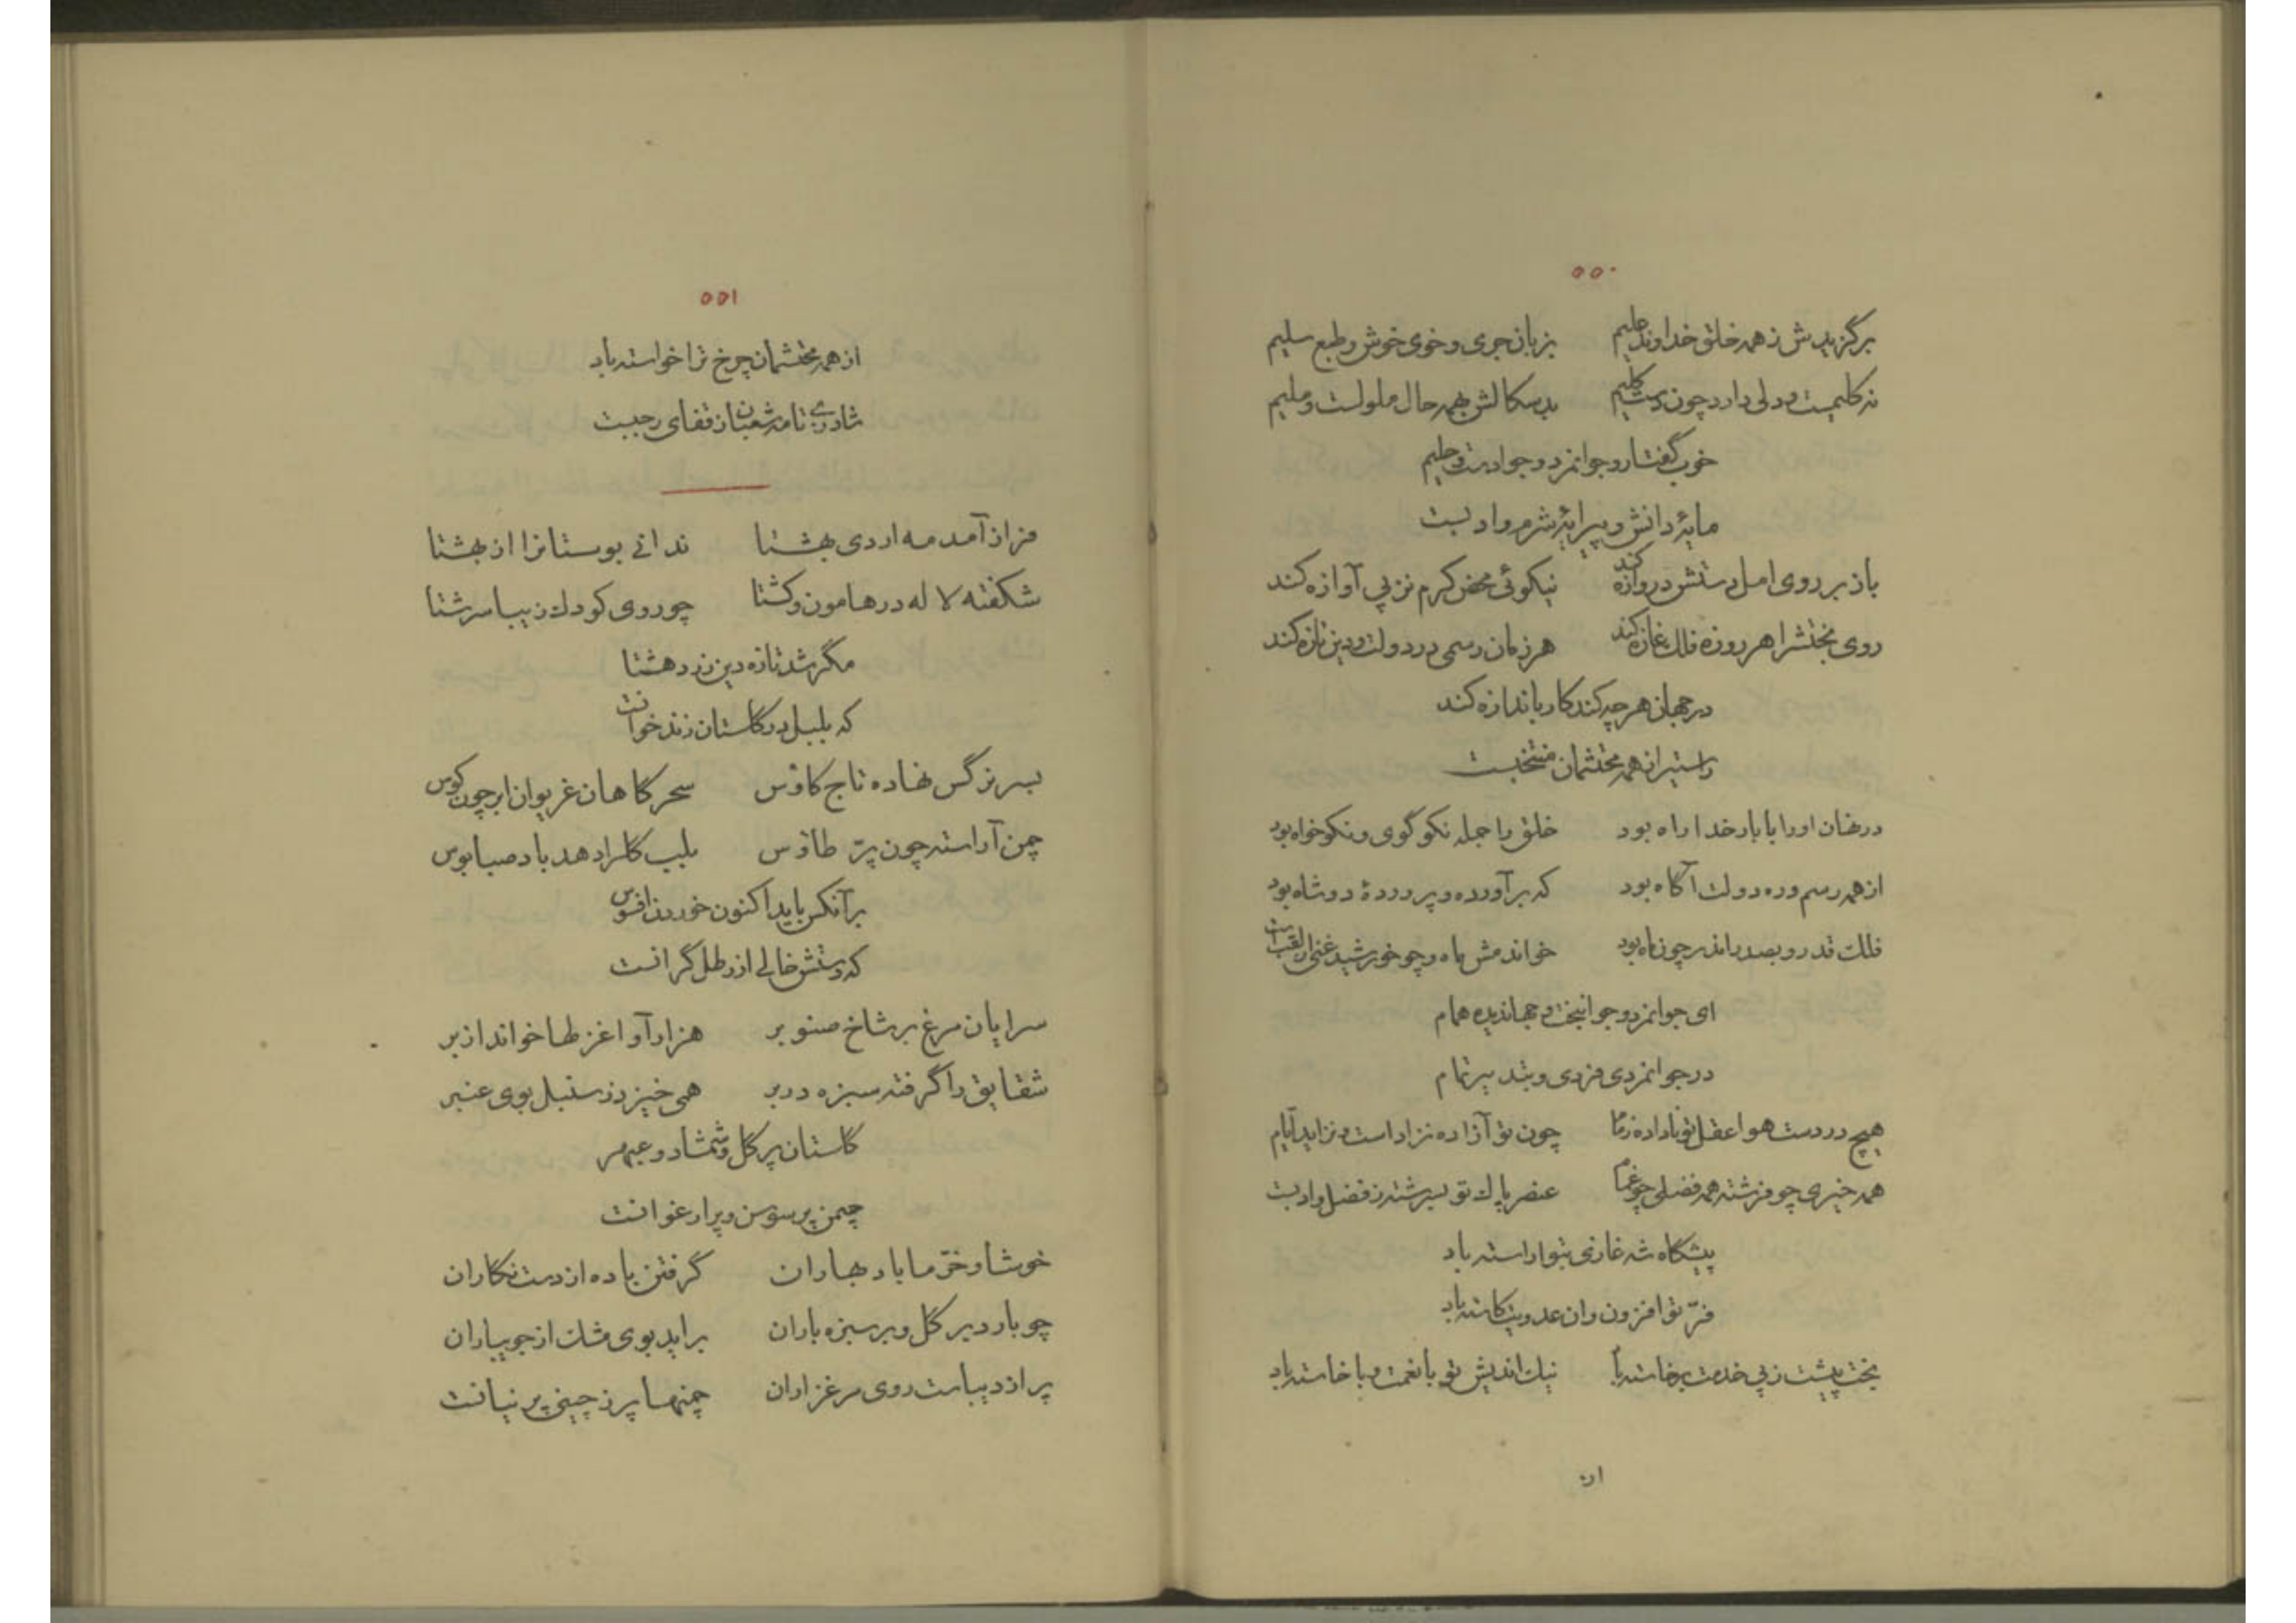 ۵۵۰
برگزیدش ز همه خلق خداوند علیم بزبان جری و خوی خوش و طبع سلیم
نه کلیمست و دلی دارد چون دست کلیم بدسکالش بهمه حال ملولست و ملیم
خوب گفتار و جوانمرد و جوادست و حلیم
مایهٔ دانش و پیرایهٔ شرم و ادبست
باز بر روی امل دستش دروازه کند نیکوئی محض کرم نز پی آوازه کند
روی بختش را هر روزه فلک غازه کند هر زمان رسمی در دولت و دین تازه کند
در جهان هر چه کند کار باندازه کند
راستی از همه محتشمان منتخبست
در نهان او را با بار خدا راه بود خلق را جمله نکو گوی و نکو خواه بود
از همه رسم و ره دولت آگاه بود که برآورده و پروردهٔ دو شاه بود
فلک قدر و بصدر اندر چون ماه بود خواندمش ماه و چو خورشید غنی از لقب است
ای جوانمرد و جوانبخت و جهاندیده همام
در جوانمردی فردی و بتدبیر تمام
هیچ در دست هوا عقل تو ناداده زمام چون تو آزاده نزاد است و نزاید ایام
همه خیری چو فرشته همه فضلی چو غمام عنصر پاک تو بسرشته ز فضل و ادبست
پیشگاه شه غازی بتو اراسته باد
فرّ تو افزون وان عدویت کاسته باد
بخت پیشت ز پی خدمت برخاسته باد نیک اندیش تو با نعمت و با خاسته باد
از
۵۵۱
از همه محتشمان چرخ ترا خواسته باد
شادزی تا مه شعبان ز قفای رجبست
فراز آمد مه اردی بهشتا ندانی بوستانرا از بهشتا
شکفته لاله در هامون و کشتا چو روی کودک زیبا سرشتا
مگر شد تازه دین زردهشتا
که بلبل در گلستان زند خوانست
بسر نرگس نهاده تاج کاؤس سحرگاهان غریوان ابر چون کوس
چمن آراسته چون پرّ طاؤس بلب گلرا دهد باد صبا بوس
برآنکس باید اکنون خوردن افسوس
که دستش خالی از رطل گرانست
سرایان مرغ بر شاخ صنوبر هزار آوا غزلها خواند از بر
شقایق را گرفته سبزه در بر همی خیزد ز سنبل بوی عنبر
گلستان پر گل و شمشاد و عبهر
چمن پر سوسن و پر ارغوانست
خوشا و خرّما باد بهاران گرفتن باده از دست نگاران
چو بارد بر گل و بر سبزه باران براید بوی مشک از جویباران
پر از دیباست روی مرغزاران چمنها پر ز چینی پرنیانست